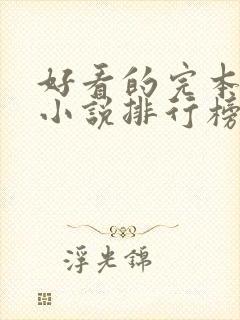 好看的完本
小说排行榜
浮光锦